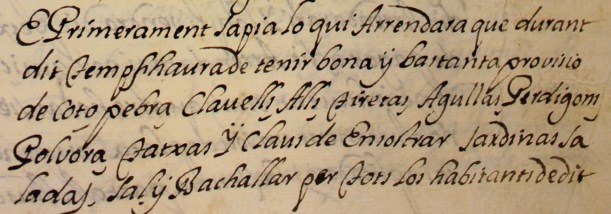 E Primerament sapia lo qui Arrendara que durant
dit temps haura de tenir bona ÿ bastanta provisio
de Coto pebra Clavells Alls tiretas Agullas Perdigons
Polvora tatxas Ÿ Claus de Ensostrar sardinas sa
ladas, sal ÿ Bachallar per tots los habitants de dit